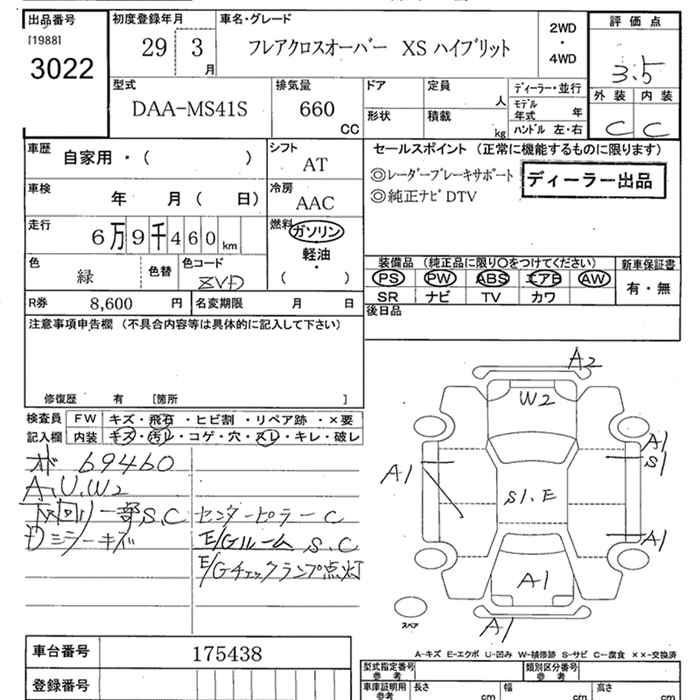 出品番号 初度登録年月 車名・グレード 評価点
[1988] 3022 29 3月 フレアクロスオーバー XS ハイブリット 2WD・4WD 3.5
外装 内装
C C
型式 排気量 ドア 定員 人 ディーラー・並行
DAA-MS41S 660 CC 形状 積載 kg モデル年式 年
ハンドル 左・右
車歴 自家用・( ) シフト AT セールスポイント (正常に機能するものに限ります)
◎レーダーブレーキサポート ディーラー出品
◎純正ナビDTV
車検 年 月 ( 日) 冷房 AAC
走行 6万9千460km 燃料 ガソリン・軽油・( )
色 緑 色替 色コード ZVD
装備品 (純正品に限り○をつけてください) 新車保証書
PS PW ABS エアB AW 有・無
SR ナビ TV カワ
R券 8,600円 名変期限 月 日
後日品
注意事項申告欄 (不具合内容等は具体的に記入して下さい)
修復歴 有 [箇所 ]
検査員 FW キズ・飛石・ヒビ割・リペア跡・×要
記入欄 内装 キズ・汚レ・コゲ・穴・スレ・キレ・破レ
69460
A.U.W2
下回リ一部S.C センターピラーC
ミラーキズ E/Gルーム S.C
E/Gチェックランプ点灯
A2
W2
A1
S1
A1
S1.E
A1
A1
A1
スペア
A-キズ E-エクボ U-凹み W-補修跡 S-サビ C-腐食 ××-交換済
車台番号 175438
登録番号
型式指定番号 参考 類別区分番号 参考
車庫証明用 参考 長さ cm 幅 cm 高さ cm